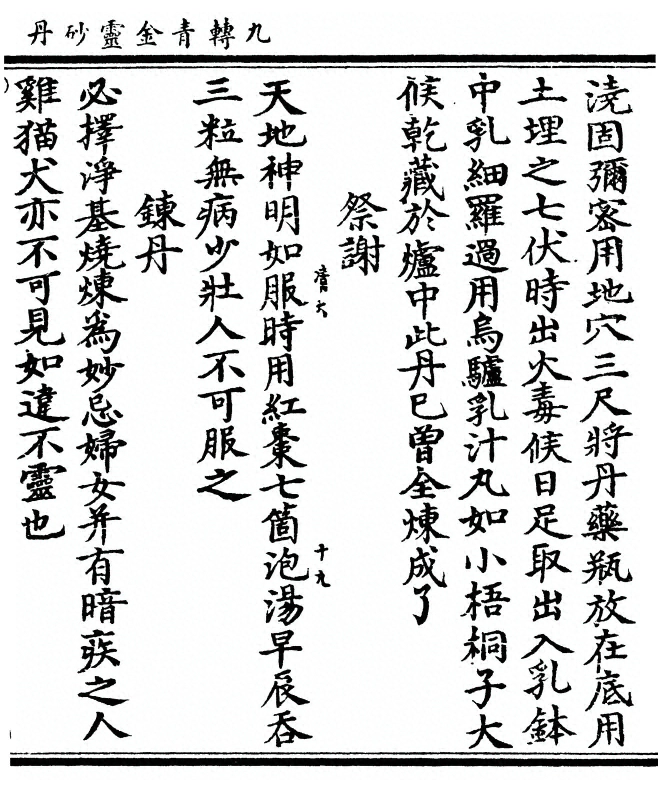 九轉青金靈砂丹
澆固彌密用地穴三尺將丹藥瓶放在底用
土埋之七伏時出火毒候日足取出入乳鉢
中乳細羅過用烏驢乳汁丸如小梧桐子大
候乾藏於爐中此丹巳曾全煉成了
祭謝
天地神明如服時用紅棗七箇泡湯早辰吞
三粒無病少壯人不可服之
鍊丹
必擇淨基燒煉為妙忌婦女并有暗疾之人
雞猫犬亦不可見如違不靈也
十九